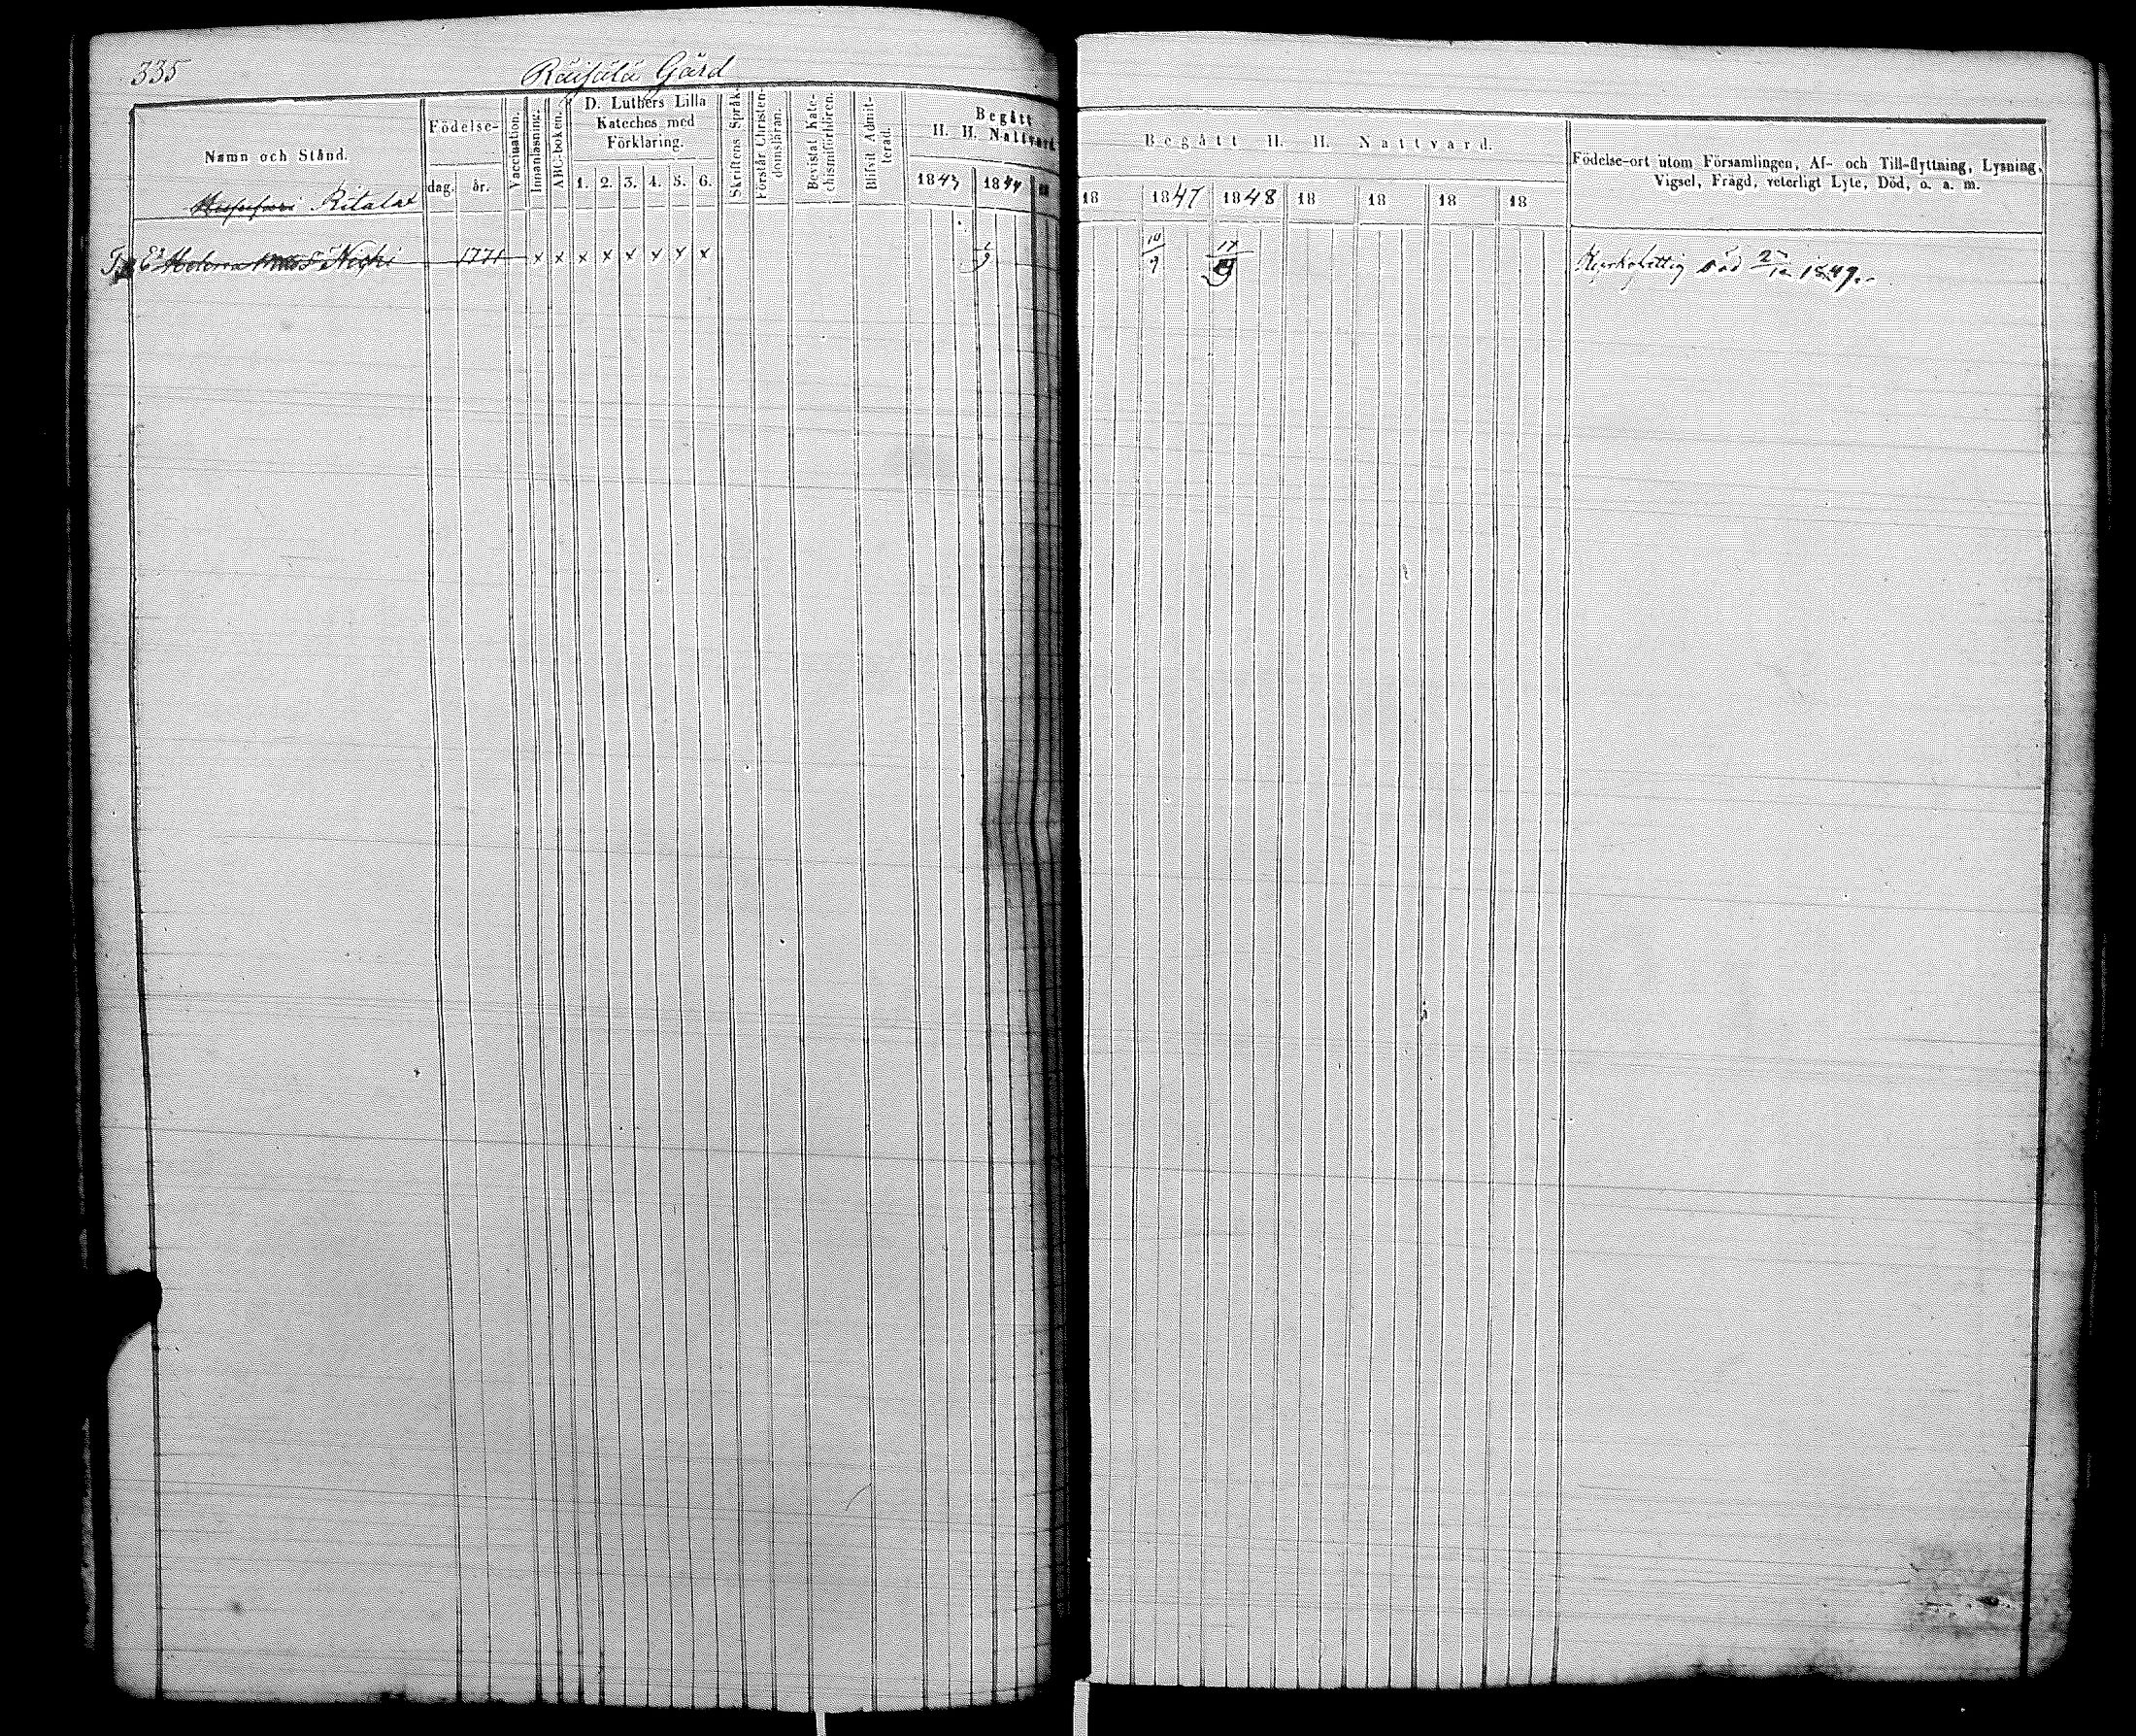 335
Räisälä Gård
Namn och Stånd.
Födelse-
dag. år.
Vaccination.
Innanläsning.
ABC-boken.
D. Luthers Lilla
Kateches med
Förklaring.
1. 2. 3. 4. 5. 6.
Skriftens Språk.
Förstår Christen-
domsläran.
Bevistat Kate-
chismiförhören.
Blifvit Admit-
terad.
Begått
H. H. Nattvard
1843 1844
Begått H. H. Nattvard.
18 1847 1848 18 18 18 18
Födelse-ort utom Församlingen, Af- och Till-flyttning, Lysning,
Vigsel, Frägd, veterligt Lyte, Död, o. a. m.
Ritalat
Helena 1771 x x x x x x x x 10/9 17/9 död 1849.